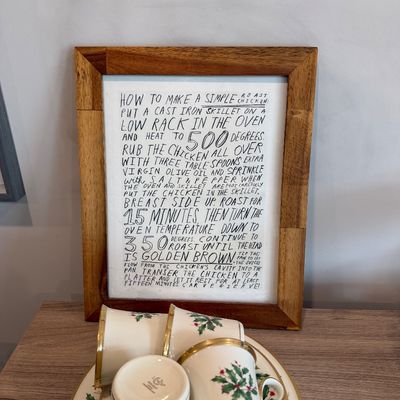 HOW TO MAKE A SIMPLE ROAST CHICKEN
PUT A CAST IRON SKILLET ON A
LOW RACK IN THE OVEN
AND HEAT TO 500 DEGREES
RUB THE CHICKEN ALL OVER
WITH THREE TABLESPOONS EXTRA
VIRGIN OLIVE OIL AND SPRINKLE
with SALT & PEPPER WHEN
THE OVEN AND SKILLET ARE HOT CAREFULLY
PUT THE CHICKEN IN THE SKILLET,
BREAST SIDE UP ROAST FOR
15 MINUTES THEN TURN THE
OVEN TEMPERATURE DOWN TO
350 DEGREES. CONTINUE TO
ROAST UNTIL THE BIRD
IS GOLDEN BROWN TIP THE
PAN TO LET THE JUICES
FLOW FROM THE CHICKEN'S CAVITY INTO THE
PAN. TRANSER THE CHICKEN TO A
PLATTER AND LET IT REST FOR AT LEAST
FIFTEEN MINUTES CARVE & SERVE!